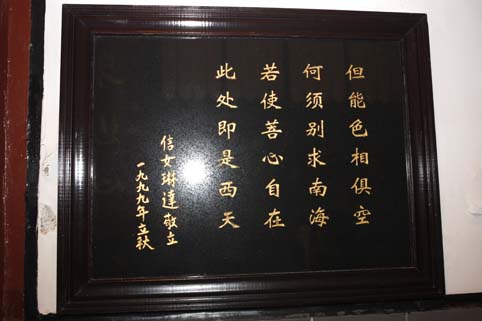 但能色相俱空
何须别求南海
若使菩心自在
此处即是西天
信女琳達敬立
一九九九年立秋